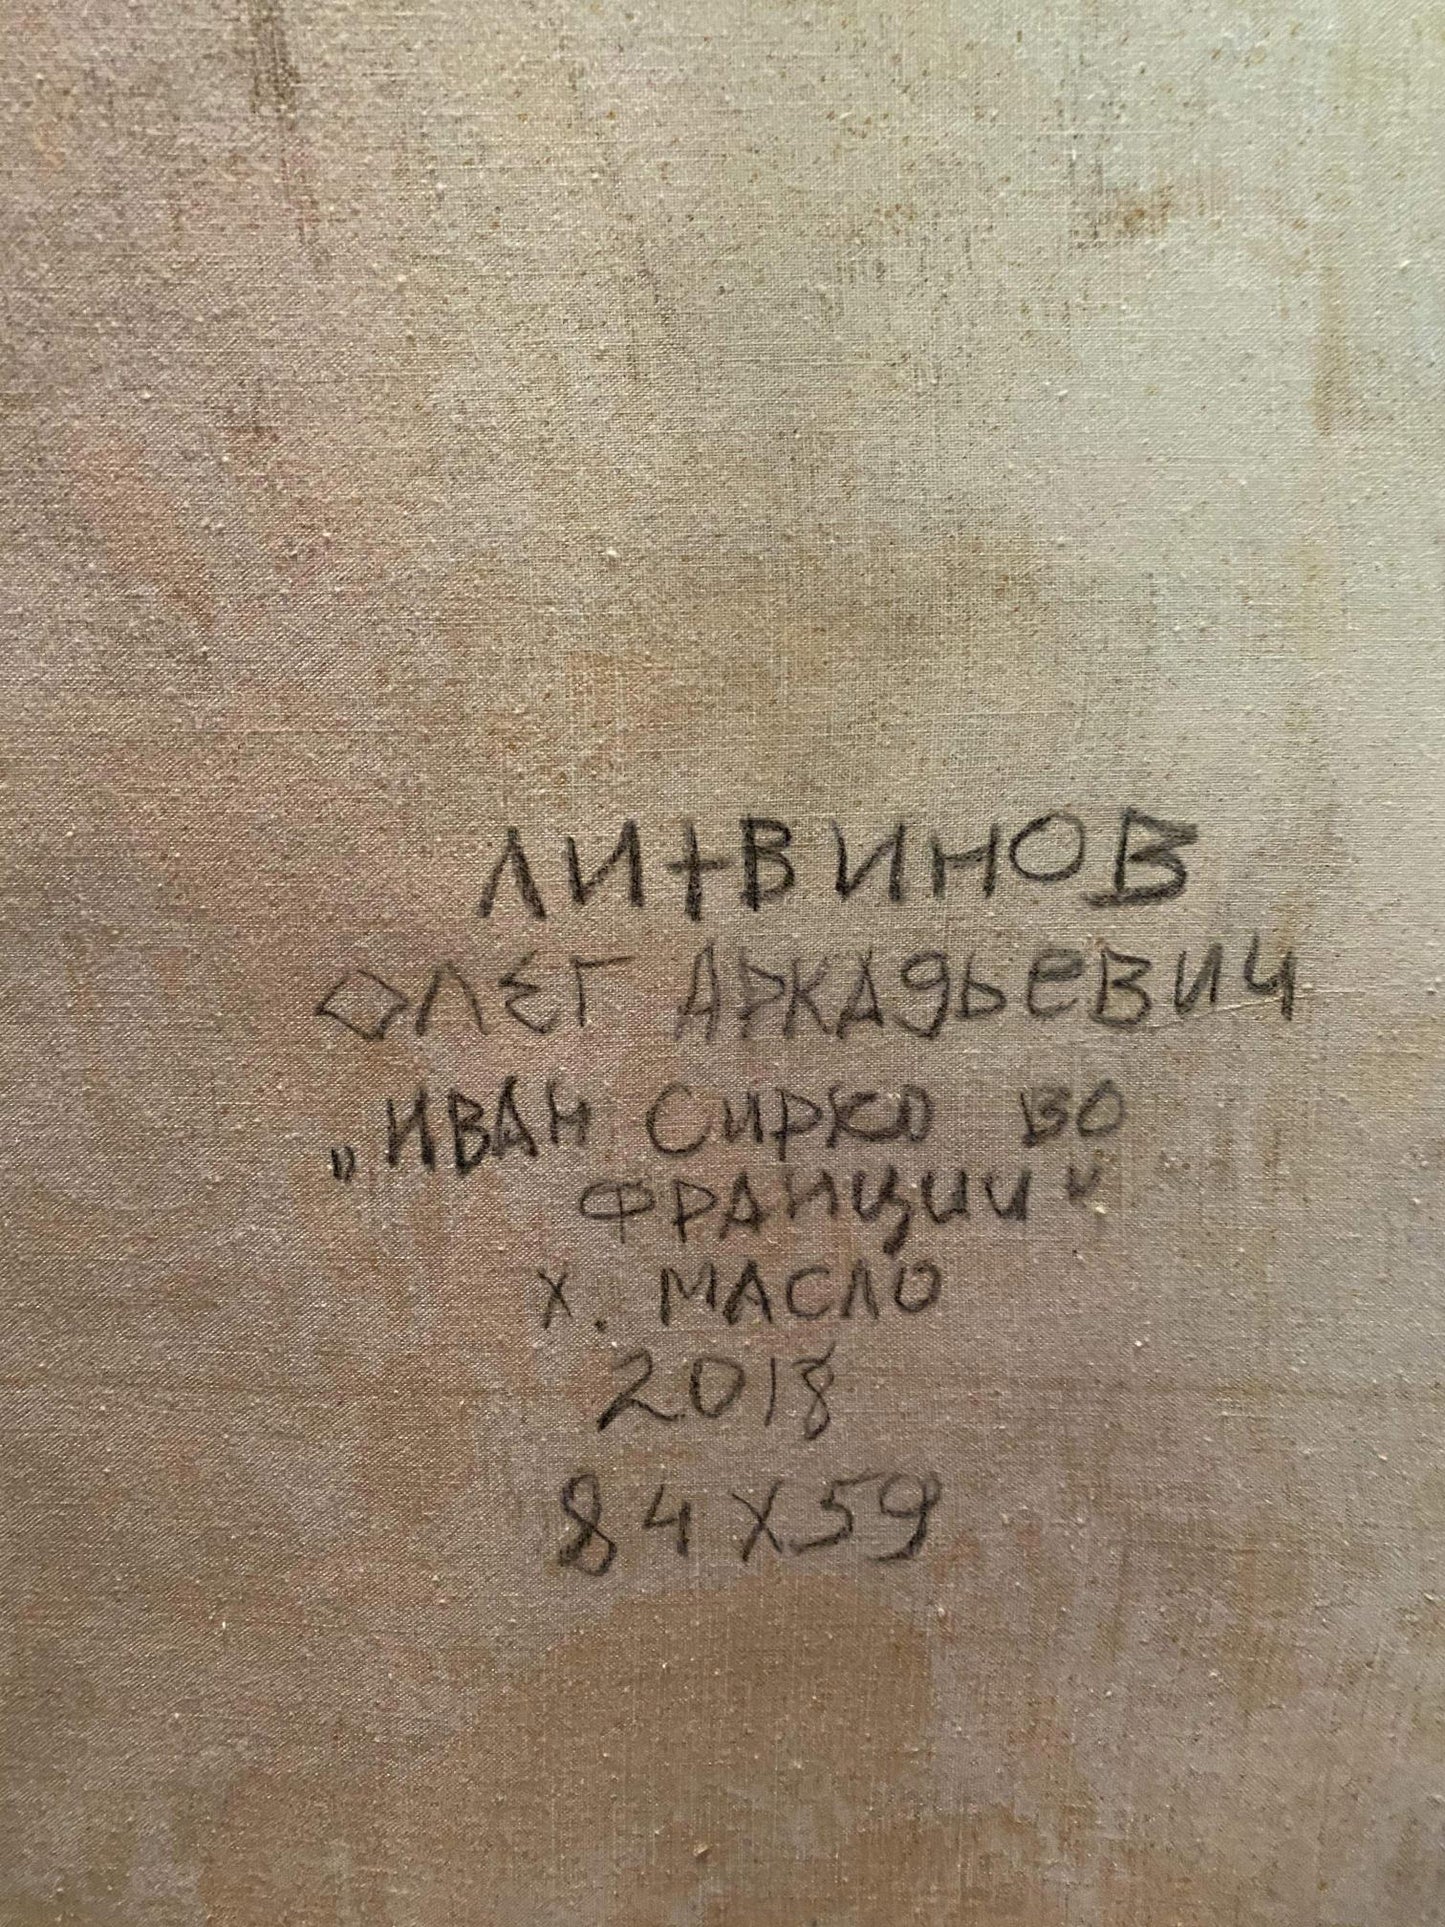 ЛИТВИНОВ
ОЛЕГ АРКАДЬЕВИЧ
„ИВАН СИРКО ВО
ФРАНЦИИ"
Х. МАСЛО
2018
84Х59